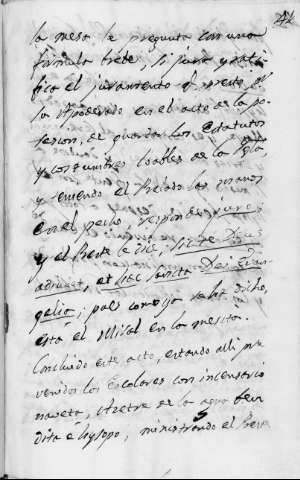 la mesa le pregunta con una
formula breve, si jura y ratifica el juramento q.e prestó p.r
su Apoderado en el acto de la posesion, de guardar los estatutos
y costumbres loables de la Ygla
y teniendo el Prelado las manos
en el pecho responde juro
y el Preste le dice, sic te Deus
adjuvet, et haec Sancta Dei Evangelia; pues como ya se ha dicho,
está el Misal en la mesita.
Concluido este acto, estando alli prevenidos los Escolares con incensario
naveta, Azetre de la agua bendita è hysopo; ministrando el Preste